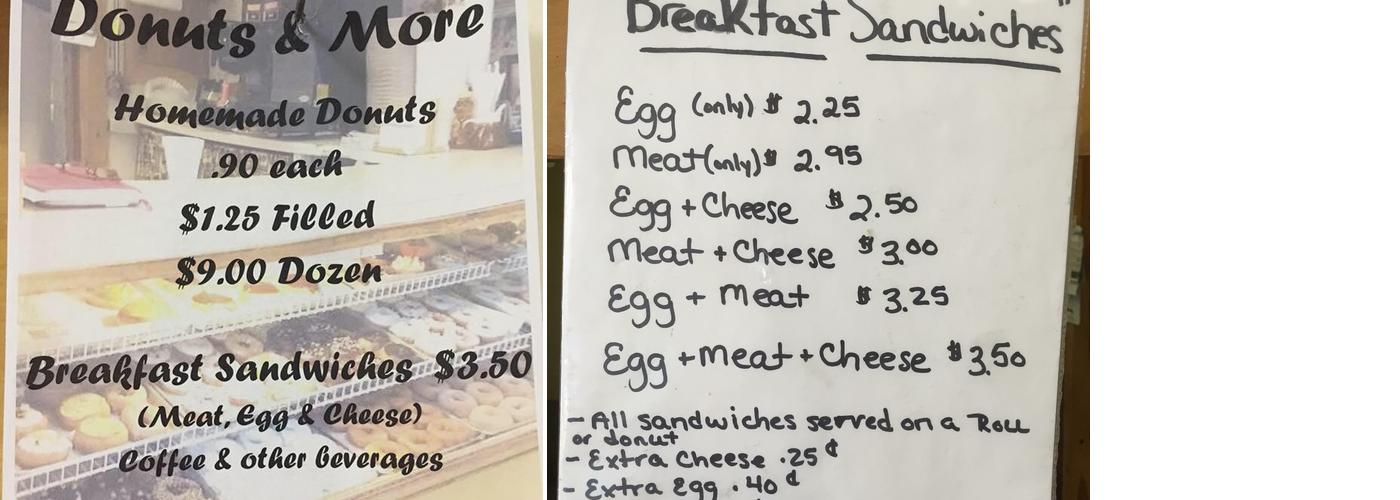 Donuts & More
Homemade Donuts
.90 each
$1.25 Filled
$9.00 Dozen
Breakfast Sandwiches $3.50
(Meat, Egg & Cheese)
Coffee & other beverages
Breakfast Sandwiches"
Egg (only) $ 2.25
Meat (only) $ 2.95
Egg + Cheese $2.50
Meat + Cheese $3.00
Egg + Meat $3.25
Egg + Meat + Cheese $3.50
- All sandwiches served on a Roll
or donut
- Extra Cheese .25¢
- Extra Egg .40¢